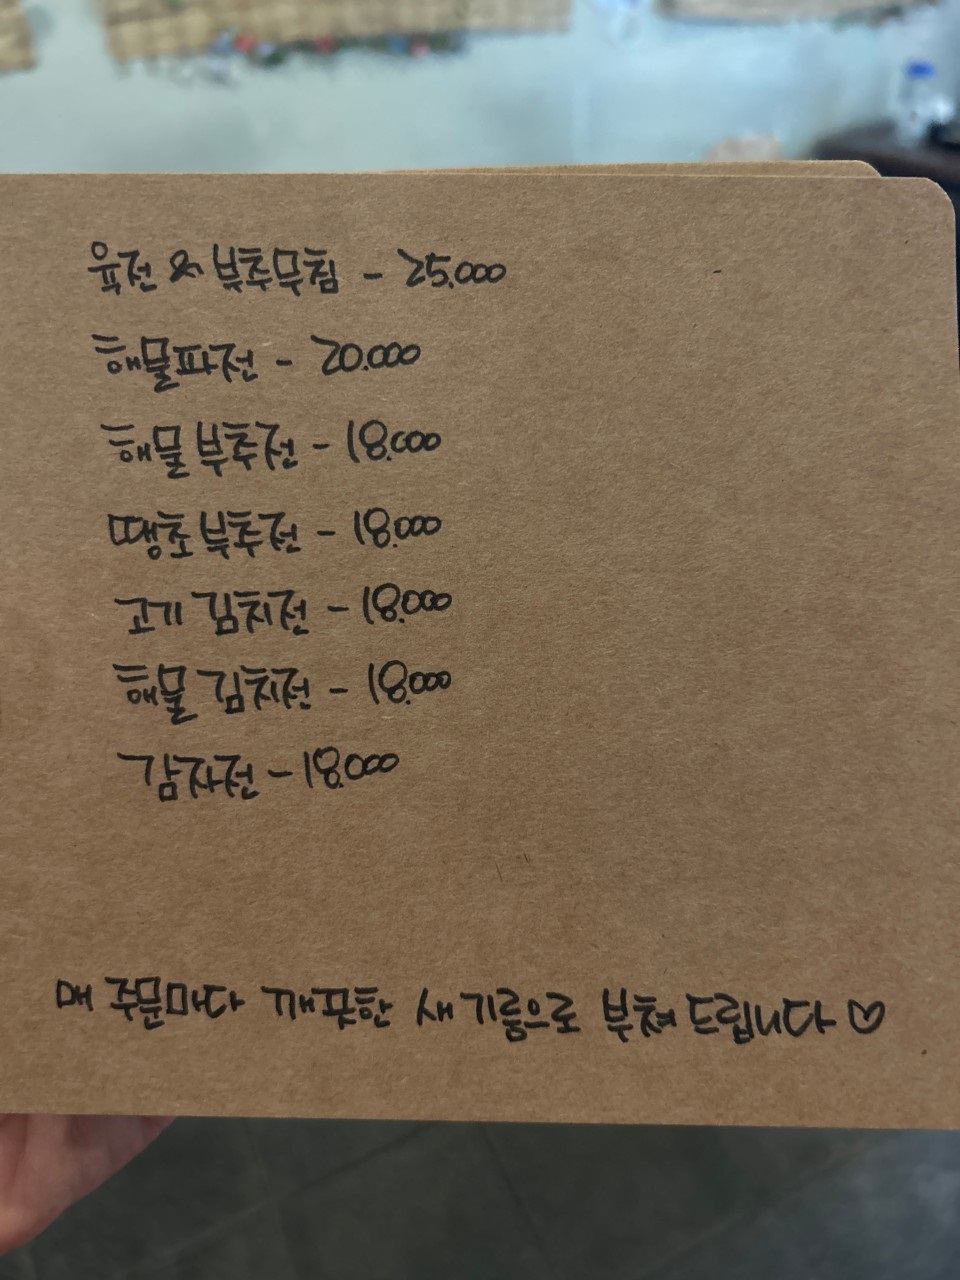 육전 & 부추무침 - 25.000
해물파전 - 20.000
해물 부추전 - 18.000
땡초 부추전 - 18.000
고기 김치전 - 18.000
해물 김치전 - 18.000
감자전 - 18.000
매 주문마다 깨끗한 새 기름으로 부쳐 드립니다 ♡